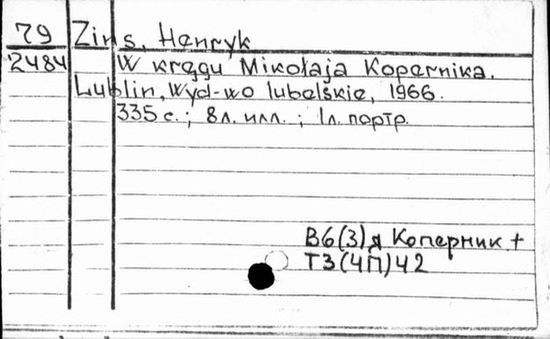 79 Zins, Henryk
2484 W kręgu Mikołaja Kopernika.
Lublin, Wyd-wo lubelskie, 1966.
335 с.; 8 л. илл.; 1 л. портр.
В6(3)я Коперник +
Т3(4П)42